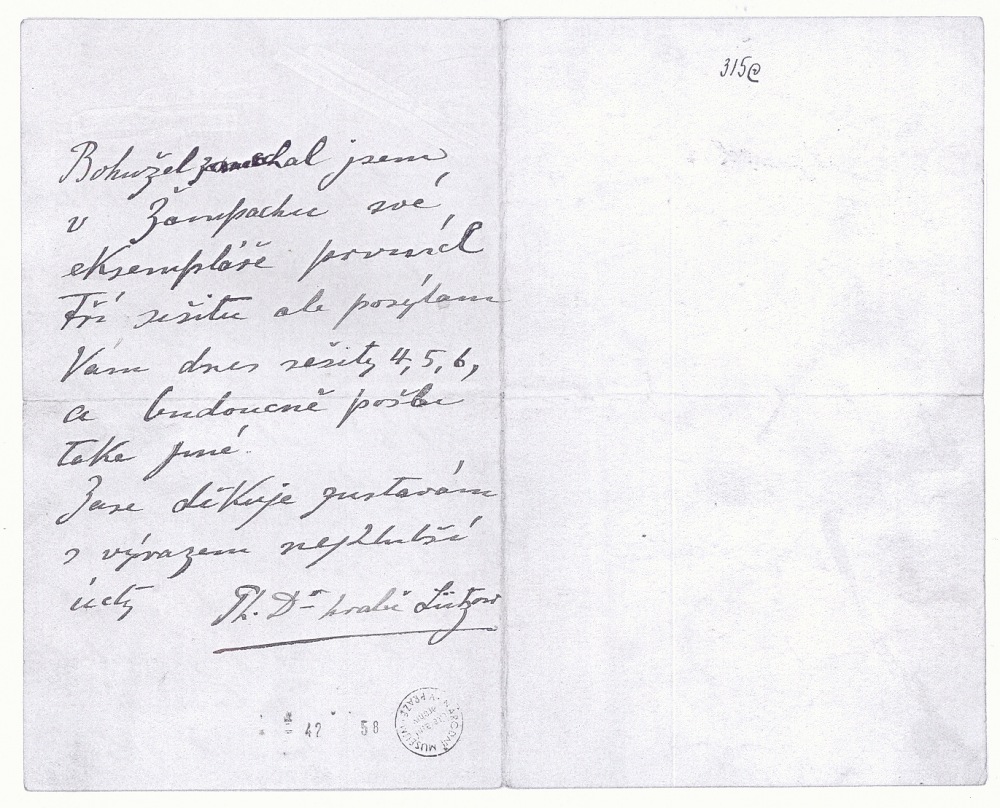 Bohužel zanechal jsem
v Žampachu své
eksempláře prvních
Tří sešitu ale posýlam
Vám dnes sešity 4, 5, 6,
a budoucně pošlu
take jiné.
Zase děkuje zustavám
s výrazem nejhlubší
úcty
Ph. Dr hrabě Lützow
42 58
NÁRODNÍ MUSEUM V PRAZE
315